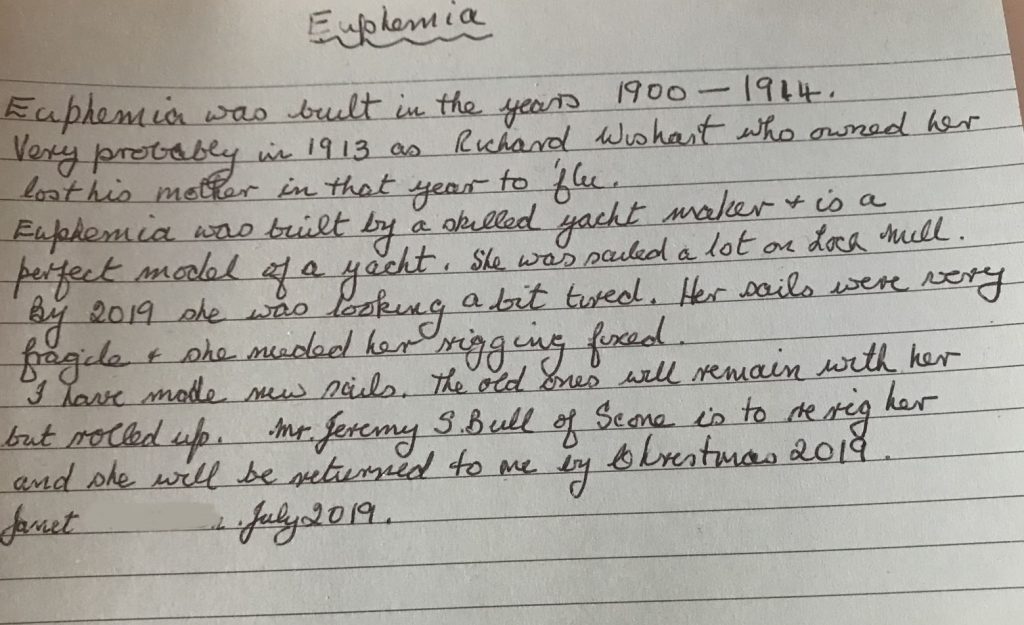 Euphemia
Euphemia was built in the years 1900 – 1914.
Very probably in 1913 as Richard Wishart who owned her
lost his mother in that year to 'flu.
Euphemia was built by a skilled yacht maker + is a
perfect model of a yacht. She was sailed a lot on Loch Mill.
By 2019 she was looking a bit tired. Her sails were very
fragile + she needed her rigging fixed.
I have made new sails. The old ones will remain with her
but rolled up. Mr. Jeremy S. Bull of Scone is to re rig her
and she will be returned to me by Christmas 2019.
Janet July 2019.